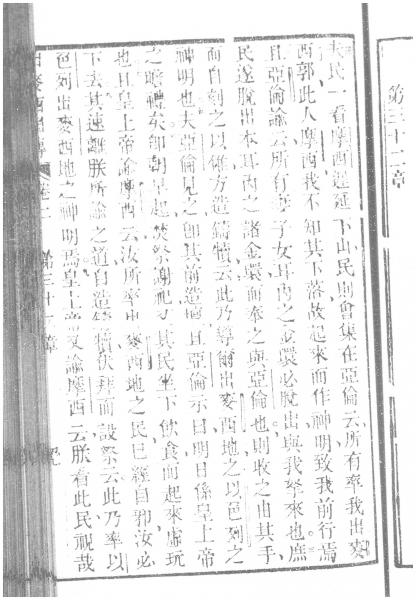 第三十二章
民一看摩西遲延下山民則會集在亞倫云所有率我出麥
西郭此人摩西我不知其下落故起來而作神明致我前行焉
且亞倫諭云所有妻子女耳內之金環必脫出與我拏來也庶
民遂脫出本耳內之諸金環而奉之與亞倫也則收之由其手
而自刻之以錐方造鑄犢云此乃導爾出麥西地之以色列之
神明也夫亞倫見之卽其前造壇且亞倫示曰明日係皇上帝
之瞻禮卽朝早起焚祭謝祀其民坐下飲食而起來虛玩
也且皇上帝諭摩西云汝所率出麥西地之民已經自邪汝必
下去其速離朕所諭之道自造鑄犢伏拜而設祭云此乃率以
色列出麥西地之神明焉皇上帝又諭摩西云朕看此民視哉
麥西 傳 卷 第三十 章